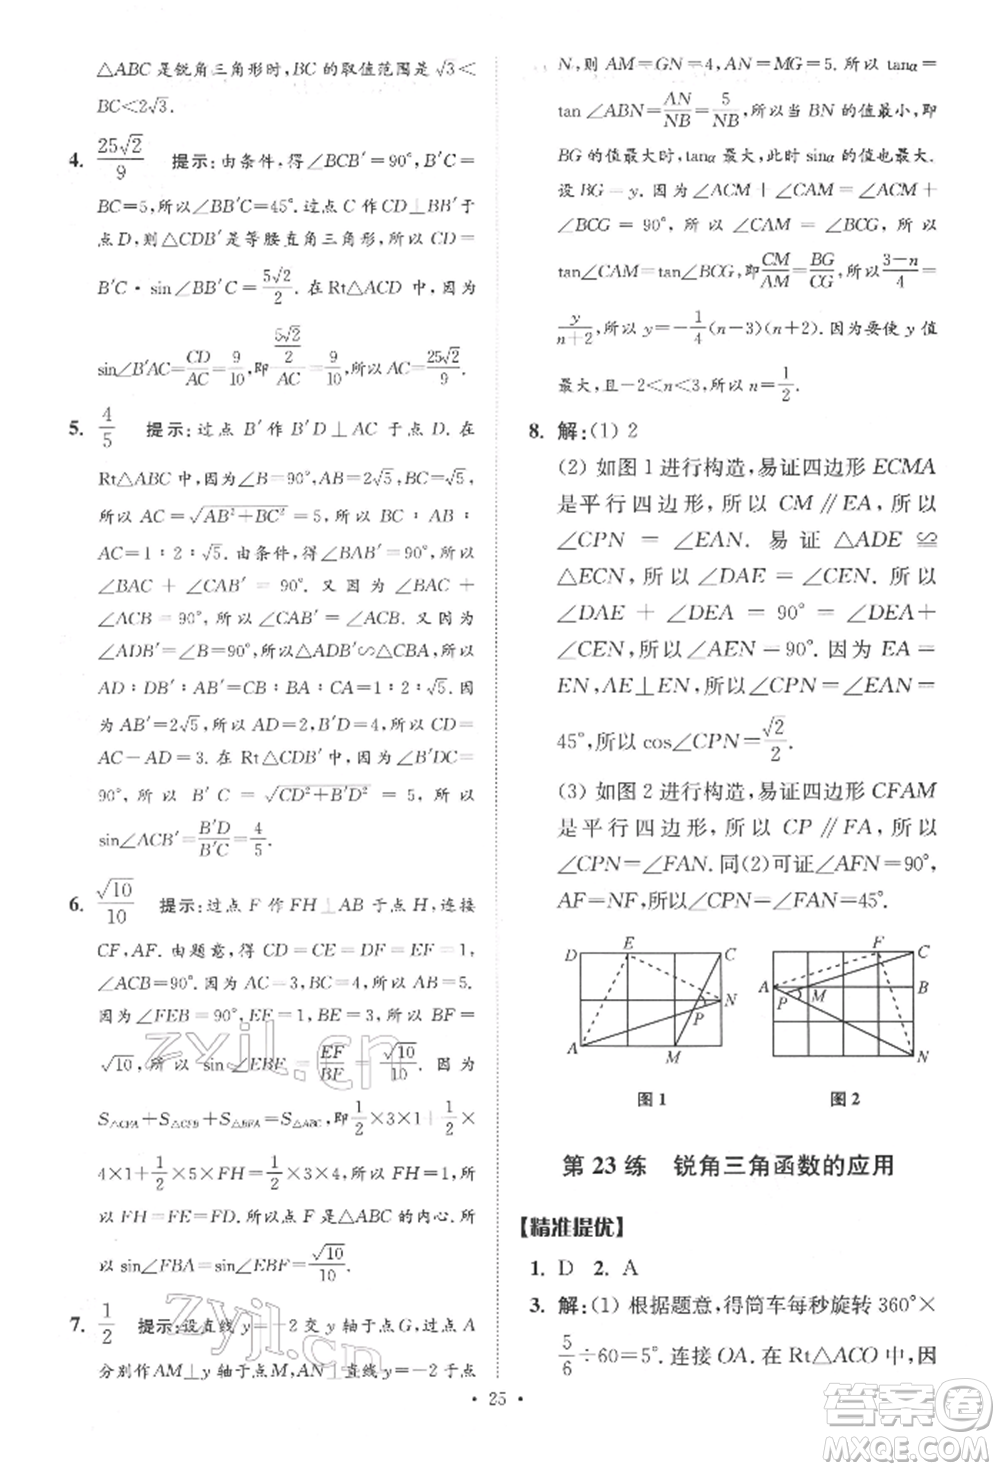 △ABC 是锐角三角形时,BC 的取值范围是√3<
BC<2√3.
4. 25√2/9 提示:由条件,得∠BCB′=90°,B′C=
BC=5,所以∠BB′C=45°.过点 C 作 CD⊥BB′于
点 D,则△CDB′是等腰直角三角形,所以 CD=
B′C·sin∠BB′C=5√2/2. 在 Rt△ACD 中,因为
sin∠B′AC=CD/AC=9/10,即(5√2/2)/AC=9/10,所以AC=25√2/9.
5. 4/5 提示:过点 B′作 B′D⊥AC 于点 D.在
Rt△ABC 中,因为∠B=90°,BC=√5,AB=2√5,
所以 AC=√(AB²+BC²)=5,所以 BC∶AB∶
AC=1∶2∶√5.由条件,得∠BAB′=90°,所以
∠BAC+∠CAB′=90°.又因为∠BAC+
∠ACB=90°,所以∠CAB′=∠ACB.又因为
∠ADB′=∠B=90°,所以△ADB′∽△CBA,所以
AD∶DB′∶AB′=CB∶BA∶CA=1∶2∶√5.因
为 AB′=2√5,所以 AD=2,B′D=4,所以 CD=
AC-AD=3.在 Rt△CDB′中,因为∠B′DC=
90°,所以 B′C=√(CD²+B′D²)=5,所以
sin∠ACB′=B′D/B′C=4/5.
6. √10/10 提示:过点 F 作 FH⊥AB 于点 H,连接
CF,AF.由题意,得 CD=CE=DF=EF=1,
∠ACB=90°.因为 AC=3,BC=4,所以 AB=5.
因为∠FEB=90°,EF=1,BE=3,所以 BF=
√10,所以 sin∠EBF=EF/BF=√10/10.因为
S△CFA+S△CFB+S△BFA=S△ABC,即1/2×3×1+1/2×
4×1+1/2×5×FH=1/2×3×4,解得 FH=1,所以
FH=FE=FD.所以点 F 是△ABC 的内心,所
以 sin∠FBA=sin∠EBF=√10/10.
7. 1/2 提示:设直线 y=-2交 y 轴于点 G,过点 A
分别作 AM⊥y 轴于点 M,AN⊥直线 y=-2 于点
N,则 AM=GN=4,AN=MG=5.所以 tanα=
tan∠ABN=AN/NB=5/NB,所以当 BN 的值最小,即
BG 的值最大时,tanα最大,此时 sinα的值最大.
设 BG=y.因为∠ACM+∠CAM=∠ACM+
∠BCG=90°,所以∠CAM=∠BCG,所以
tan∠CAM=tan∠BCG,即CM/AM=BG/CG,所以(3-n)/4=
y/(n+2),所以 y=-1/4(n-3)(n+2).因为要使 y 值
最大,且-2<n<3,所以 n=1/2.
8. 解:(1) 2
(2) 如图 1 进行构造,易证四边形 ECMA
是平行四边形,所以 CM∥EA,所以
∠CPN=∠EAN.易证△ADE≌
△ECN,所以∠DAE=∠CEN.所以
∠DAE+∠DEA=90°=∠CEN+
∠DEA,所以∠AEN=90°.因为 EA=
EN,AE⊥EN,所以∠CPN=∠EAN=
45°,所以 cos∠CPN=√2/2.
(3) 如图 2 进行构造,易证四边形 CFAM
是平行四边形,所以 CP∥FA,所以
∠CPN=∠FAN.同(2)可证∠AFN=90°,
AF=NF,所以∠CPN=∠FAN=45°.
D E C
N
P
A M
F C
A P M B
N
图 1 图 2
第 23 练 锐角三角函数的应用
【精准提优】
1. D 2. A
3. 解:(1) 根据题意,得筒车每秒旋转 360°×
5/6÷60=5°.连接 OA.在 Rt△ACO 中,因
· 25 ·
zyjl.cn
zyjl.cn
答案圈
MXQE.COM